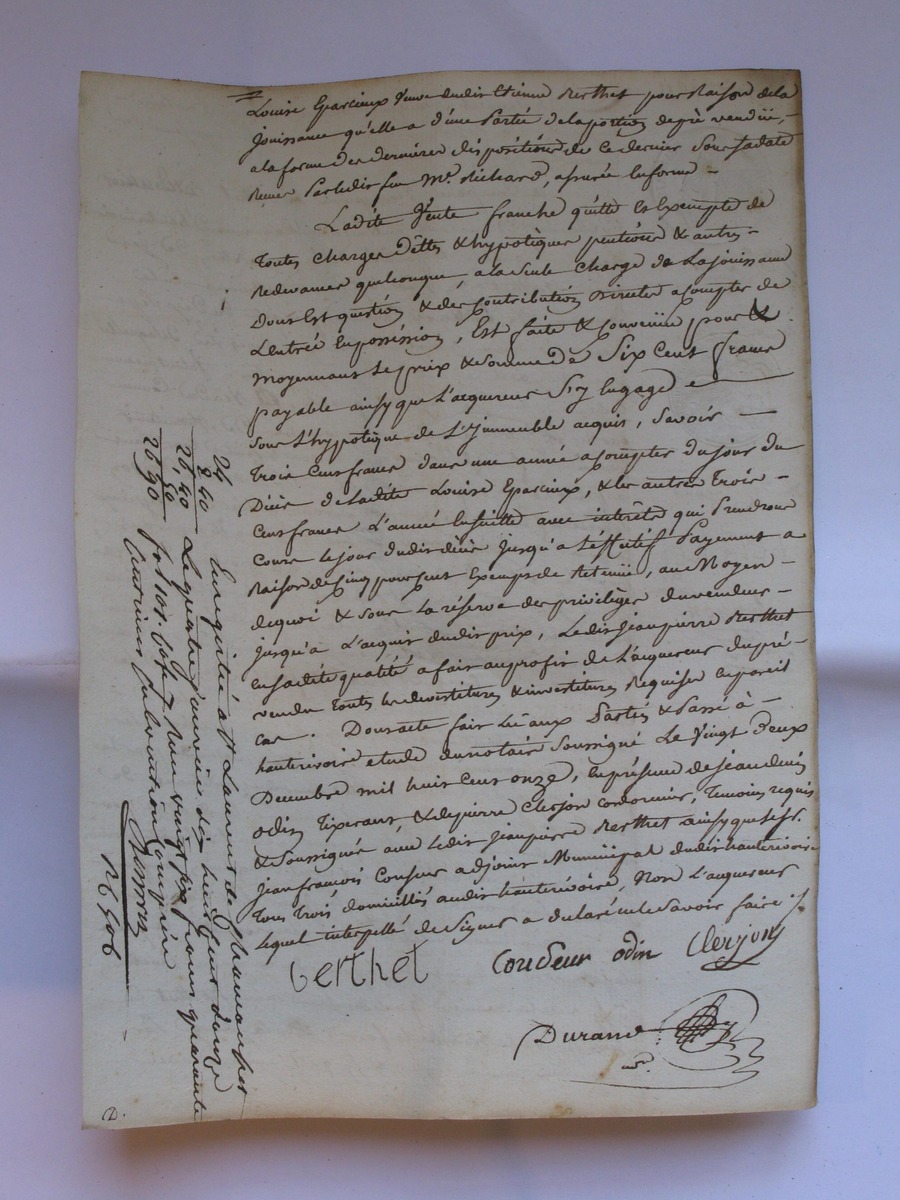 Louise Eparcieux Veuve dudit Etienne Berthet pour Raison de la
jouissance qu'elle a d'une Partie de la portion de pré vendüe,
a la forme des dernières dispositions de ce dernier sous sa date
Reçues Par ledit feu Me. Richard, assurée en forme
Ladite Vente franche quitte et Exempte de
Toutes charges dettes & hypotèques pentions & autres
Redevances quelconque, a la seule charge de La jouissance
Dont Est question & des Contributions directes a compter de
L'entrée en possession, Est faite & Convenüe pour &
moyennant Le prix & Somme de Six Cent francs
payable ainsy que L'acquereur S'y Engage
sous L'hypotèque de L'immeuble acquis, savoir
Trois Cent francs dans une année a compter du jour du
Décès de Ladite Louise Eparcieux, & les autres Trois
Cent francs L'année Ensuitte avec intérêts qui Prendront
Cours le jour dudit décès jusqu'a L'effectif Payement a
Raison de Cinq pour Cent Exempts de Retenüe, au Moyen
de quoi & sous La réserve des priviléges du vendeur
jusqu'a L'acquit dudit prix, Ledit Jeanpierre Berthet
En sa dite qualité a fait au profit de L'acquereur du pré
vendu Touttes les devestitures & investitures Requises En pareil
cas. Dont acte fait Lû aux Parties & Passé à
hauterivoire etude du notaire Soussigné Le Vingt deux
Decembre mil huit Cent onze, En présence de jean denis
odin Tixerant, & de pierre Clerjon Cordonnier, Temoins requis
& Soussignés avec Ledit jeanpierre Berthet ainsy que le Sr.
jean françois Couseur adjoint Municipal dudit hauterivoire
Tous Trois domiciliés audit hauterivoire, Non L'acquereur
Lequel interpellé de Signer a déclaré ne le Savoir faire
berthet Couseur odin Clerjon
Durand
nre.
24
2 40
26, 40
50
26 90
Enregistré a St Laurent de Chamousset
Le quatre janvier dix huit Cent douze
Reçu vingt six francs quarante
Centimes subvention Comprise
D.